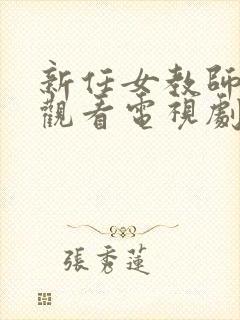 新任女教師
觀看電視劇
張秀蓮